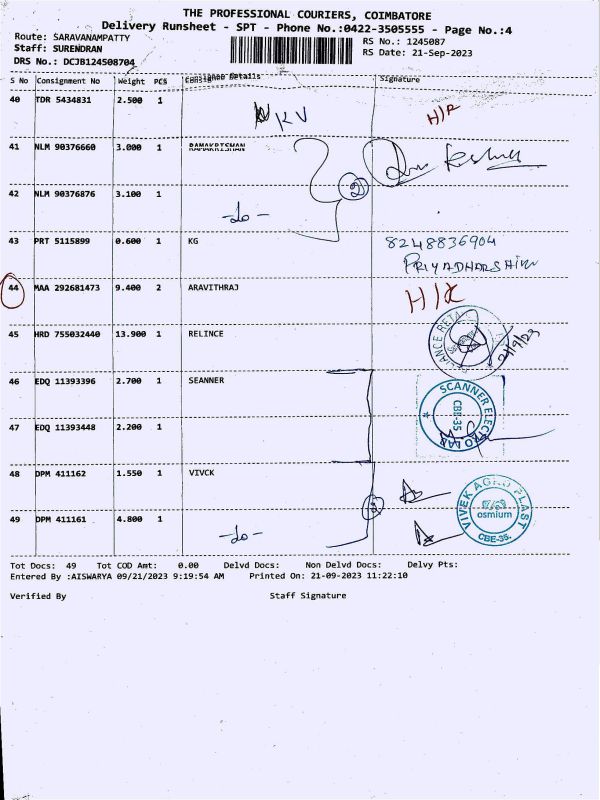 THE PROFESSIONAL COURIERS, COIMBATORE
Delivery Runsheet - SPT - Phone No.:0422-3505555 - Page No.:4
Route: SARAVANAMPATTY
RS No.: 1245087
Staff: SURENDRAN
RS Date: 21-Sep-2023
DRS No.: DCJB124508704
S No Consignment No Weight PCS Consignee Details Signature
40 TDR 5434831 2.500 1 KV H/R
41 NLM 90376660 3.000 1 RAMAKRISHAN
2
42 NLM 90376876 3.100 1 -do-
43 PRT 5115899 0.600 1 KG 8248836904
PRIYADHARSHINI
44 MAA 292681473 9.400 2 ARAVITHRAJ
45 HRD 755032440 13.900 1 RELINCE 21/9/23
46 EDQ 11393396 2.700 1 SEANNER SCANNER ELECTRO LAB
CBE-35
47 EDQ 11393448 2.200 1
48 DPM 411162 1.550 1 VIVCK VIVEK AGRO PLAST
osmium
CBE-35.
49 DPM 411161 4.800 1 -do-
Tot Docs: 49 Tot COD Amt: 0.00 Delvd Docs: Non Delvd Docs: Delvy Pts:
Entered By :AISWARYA 09/21/2023 9:19:54 AM Printed On: 21-09-2023 11:22:10
Verified By Staff Signature